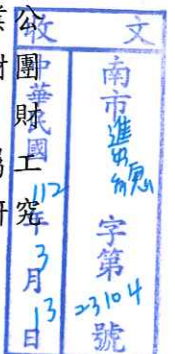 收文
南市進字第23104號
中華民國112年3月13日
公團財工究